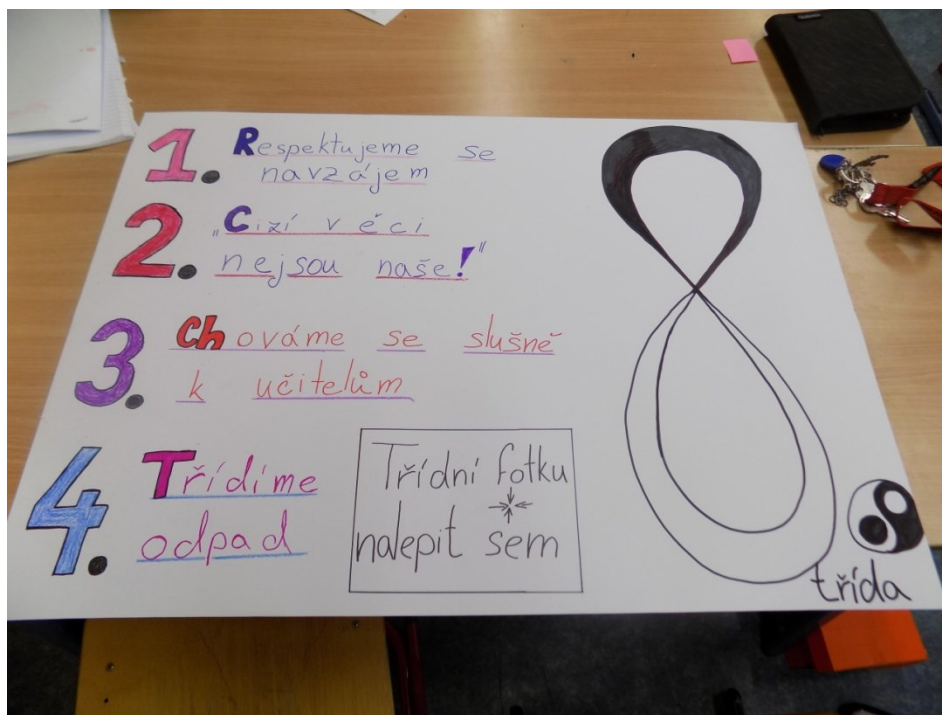 1. Respektujeme se
navzájem
2. „Cizí věci
nejsou naše!“
3. Chováme se slušně
k učitelům
4. Třídíme
odpad
Třídní fotku
nalepit sem
8
třída